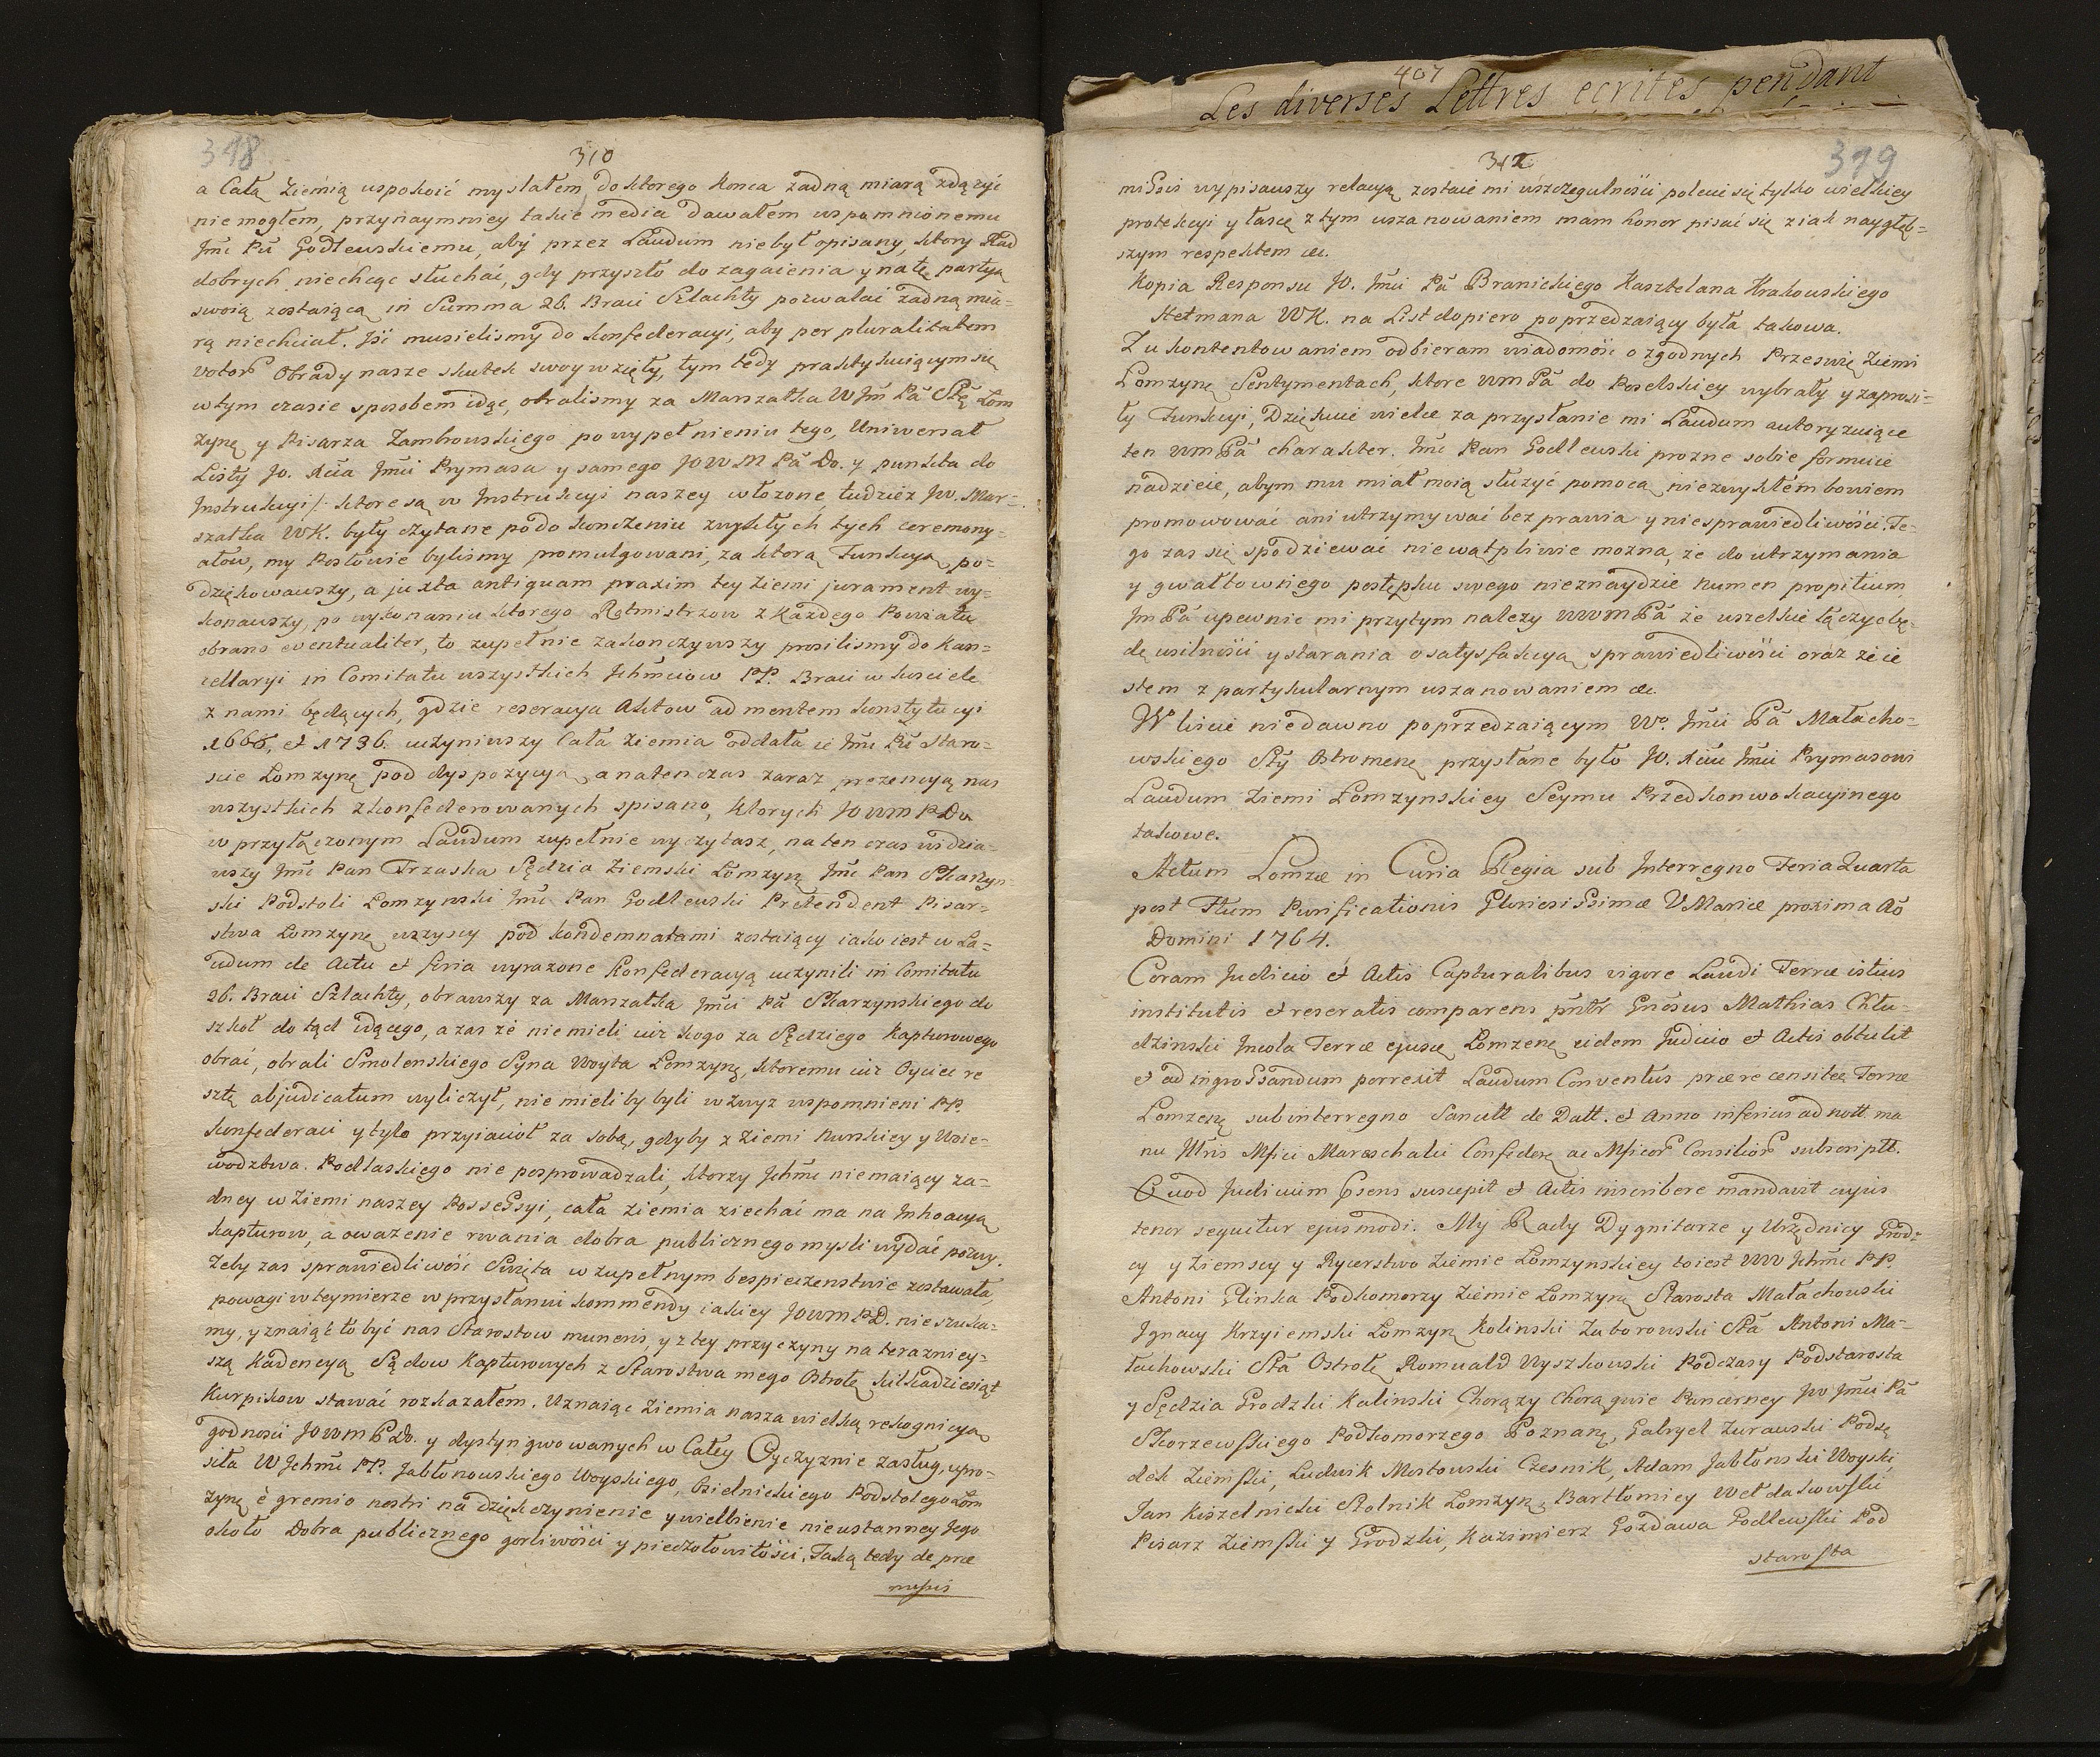 318
310
a Całą Ziemią uspokoić myslałem, do ktorego konca zadną miarą zdązyć
niemogłem, przynaymniey takie media dawałem wspomnionemu
Jmć Pu Godlewskiemu, aby przez Laudum niebył opisany, ktory Rad
dobrych niechcąc słuchać, gdy przyszło do zagaienia y natę partyą
swoią zostaiącą in Summa 26. Braci Szlachty pozwalać zadną mia-
rą niechciał. Iść musielismy do konfederacyi, aby per pluralitatem
votor Obrady nasze skutek swoy wzięły, tym tedy praktykuiącym się
w tym czasie sposobem idąc, obralismy za Marszałka WJm Pa Stę Łom
zynę y Pisarza Zambrowskiego po wypełnieniu tego, Uniwersał
Listy Jo. Xcia Jmci Prymasa y samego JOWM Pa Do. y punkta do
Instrukcyi /: ktore są w Instrukcyi naszey włozone, tudziez Jw. Mar-
szałka WK. były czytane podokonczeniu zwykłych tych ceremony-
ałow, my Posłowie bylismy promulgowani, za ktorą Funkcyą po-
dziękowawszy, a juxta antiquam praxim tey Ziemi jurament wy-
konawszy, po wykonaniu ktorego Rotmistrzow z Kazdego Powiatu
obrano eventualiter, to zupełnie zakonczywszy prosilismy do Kan-
cellaryi in Comitatu wszystkich Jchmciow PP. Braci w kosciele
z nami będących, gdzie reseracya Aktow ad mentem konstytucyi
1666, et 1736. uczyniwszy Cała Ziemia oddała ie Jmc Pu Staro-
scie Łomzynę pod dyspozycyą, a natenczas zaraz prezencyą nas
wszystkich zkonfederowanych spisano, ktorych JOWM PDo
w przyłączonym Laudum zupełnie wyczytasz, na ten czas widzia-
wszy Jmc Pan Trzaska Sędzia Ziemski Łomzynę Jmc Pan Skarzyn-
ski Podstoli Łomzynski Jmc Pan Godlewski Pretendent Pisar-
stwa Łomzynę wszyscy pod kondemnatami zostaiący iako iest w La-
udum de Actu et feria wyrazone Konfederacyą uczynili in Comitatu
26. Braci Szlachty, obrawszy za Marszałka Jmci Pa Skarzynskiego do
szkoł do tąd idącego, a zas ze niemieli iuz kogo za Sędziego Kapturowego
obrać, obrali Smolenskiego Syna Woyta Łomzynę, ktoremu iuz Oyciec re
sztę abjudicatum wyliczył, niemieliby byli wzwyz wspomnieni PP.
konfederaci y tylo przyiacioł za sobą, gdyby z Ziemi Nurskiey y Woie-
wodztwa Podlaskiego nie posprowadzali, ktorzy Jchmc niemaiący za-
dney w Ziemi naszey Possessyi, cała Ziemia ziechać ma na Inkoacyą
kapturow, a owazenie rwania dobra publicznego mysli wydać pozwy.
Zeby zas sprawiedliwość Swięta w zupełnym bespieczenstwie zostawała,
powagi w teymierze w przysłaniu kommendy iakiey JOWM PD. nie szuka-
my, y znaiąc to być nas Starostow muneris, y z tey przyczyny na terazniey-
szą Kadencyą Sądow Kapturowych z Starostwa mego Ostrołę kilkadziesiąt
Kurpikow stawać rozkazałem. Uznaiąc Ziemia nasza wielką rekognicyą
godnosci JOWM PDo. y dystyngwowanych w Całey Oyczyznie zasług, upro-
siła WJchmc PP. Jabłonowskiego Woyskiego, Osielnickiego Podstolego Łom
zynę è gremio nostri na dziękczynienie y wielbienie nieustanney Jego
około Dobra publicznego gorliwości y pieczołowitości. Taką tedy de prae
missis
407
Les diverses Lettres ecrites pendant
312
319
missis wypisawszy relacyą zostaie mi wszczegulności polecić się tylko wielkiey
protekcyi y łasce z tym uszanowaniem mam honor pisać się z iak naygłęb-
szym respektem &c.
Kopia Responsu JO. Jmci Pa Branickiego Kasztelana Krakowskiego
Hetmana WK. na List dopiero poprzedzaiący była takowa.
Z ukontentowaniem odbieram wiadomość o zgodnych Przeswię Ziemi
Łomzynę Sentymentach, ktore WmPa do Poselskiey wybrały y zaprosi-
ły Funkcyi, Dziękuię wielce za przysłanie mi Laudum autoryzuiące
ten WmPa charakter. Jmc Pan Godlewski prozne sobie formuie
nadzieie, abym mu miał moią słuzyć pomocą, niezwykłem bowiem
promowować ani utrzymywać bez prawia y niesprawiedliwości. Te-
go zas się spodziewać niewątpliwie mozna, ze do utrzymania
y gwałtownego postępku swego nieznaydzie Numen propitium
JmPa upewnic mi przytym nalezy WWmPa ze wszelkie łączyc bę-
dę usilności y starania o satysfakcyą sprawiedliwości oraz ze ie
stem z partykularnym uszanowaniem &c.
W liscie niedawno poprzedzaiącym Wo. Jmci Pa Małacho-
wskiego Sty Ostromenę przysłane było JO. Xciu Jmci Prymasowi
Laudum Ziemi Łomzynskiey Seymu Przedkonwokacyinego
takowe.
Actum Lomzæ in Curia Regia sub Interregno Feria Quarta
post Ftum Purificationis Gloriosissimæ VMariæ proxima Ao
Domini 1764.
Coram Judicio et Actis Capturalibus vigore Laudi Terræ istius
institutis et reseratis comparens pntr Gnosus Mathias Chlu-
dzinski Incola Terræ ejusce Lomzenę eidem Judicio et Actis obtulit
et ad ingrossandum porrexit Laudum Conventus præ recensitæ Terræ
Lomzenę sub interregno Sancitt de Datt. et Anno inferius ad nott. ma
nu Mtris Mfici Mareschalci Confederę ac Mficor Consilior subscriptt.
Quod Judicium Psens suscepit et Actis inscribere mandavit cujus
tenor sequitur ejusmodi. My Rady Dygnitarze y Urzędnicy Grod-
cy y Ziemscy y Rycerstwo Ziemie Łomzynskiey toiest WW Jchmc PP.
Antoni Glinka Podkomorzy Ziemie Łomzynę Starosta Małachowski
Ignacy Krzyiemski Łomzyn Kolinski Zaborowski Sta Antoni Ma-
łachowski Sta Ostrołę Romuald Wyszkowski Podczaszy Podstarosta
y Sędzia Grodzki Kalinski Chorązy Chorągwie Pancerney Jw Jmci Pa
Skorzewskiego Podkomorzego Poznanę, Gabryel Zurawski Podsę
dek Ziemski, Ludwik Mostowski Czesnik, Adam Jabłonski Woyski
Jan Kiszelnicki Stolnik Łomzynę, Bartłomiey Wełdakowski
Pisarz Ziemski y Grodzki, Kazimierz Gozdawa Godlewski Pod
starosta